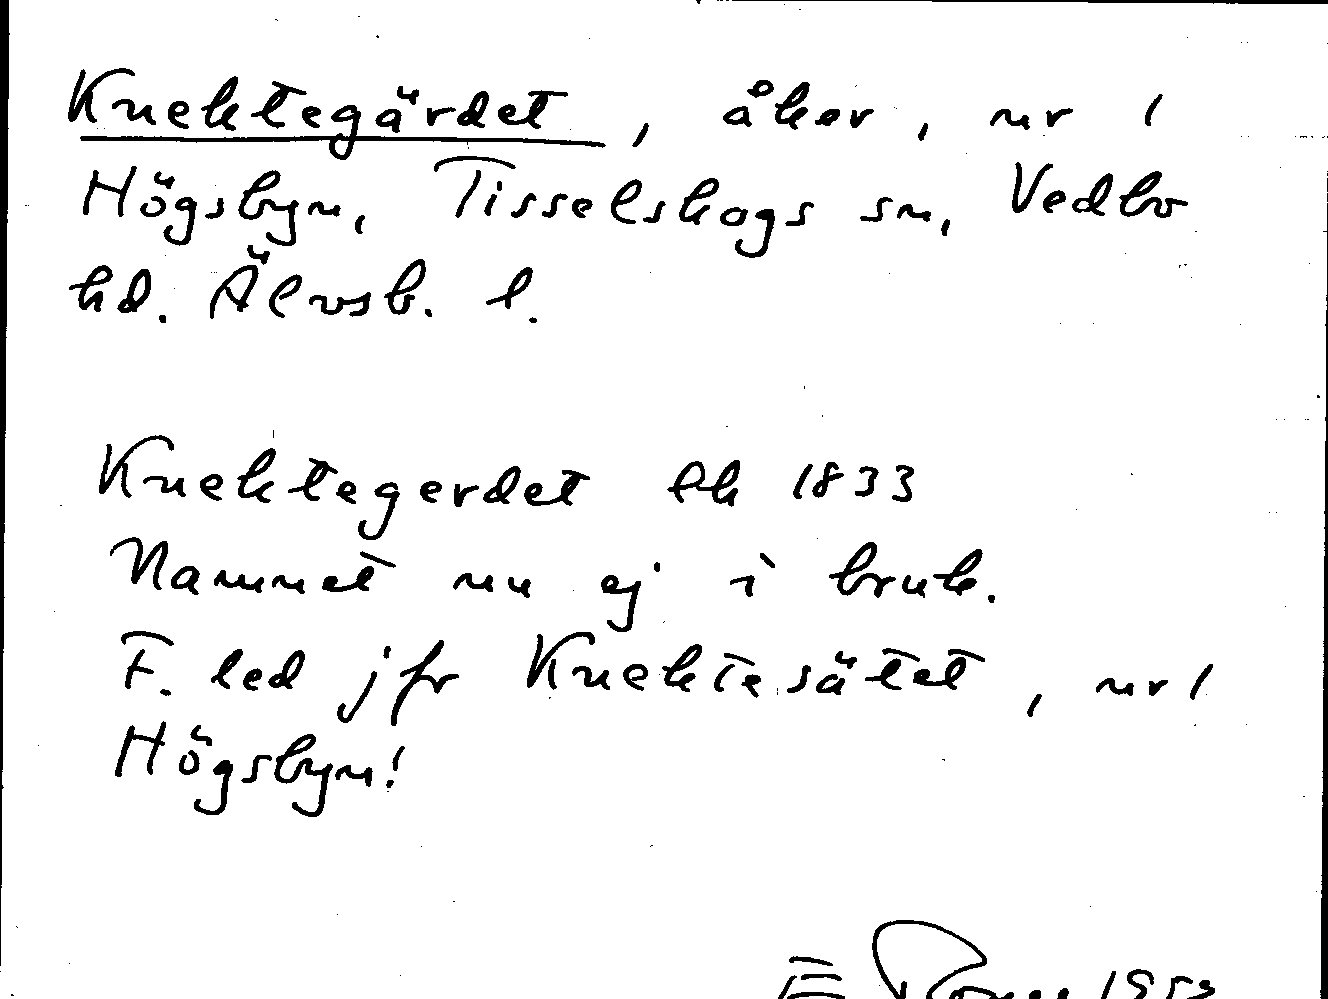 Knektegärdet, åker, nr 1
Högsbyn, Tisselskogs sn, Vedbo
hd. Älvsb. l.
Knektegerdet lk 1833
Namnet nu ej i bruk.
F. led jfr Knektesätet, nr 1
Högsbyn!
E